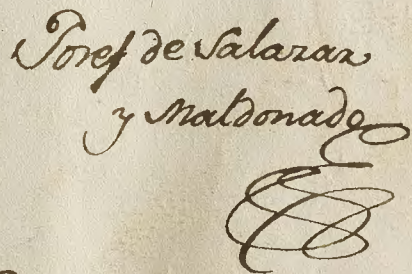 Josef de Salazar
y Maldonado